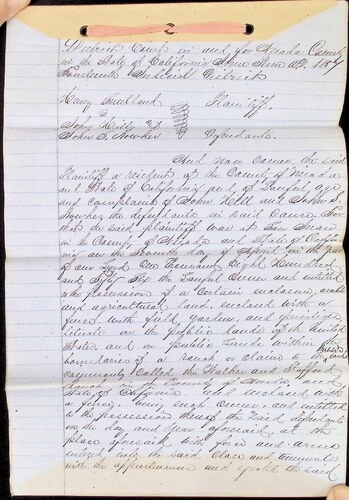 District Court in and for Nevada County
in the State of California June Term AD. 1857
Fourteenth Judicial District
Plaintiff
vs
John Hill &
John S. Defendants.
And now comes the said
Plaintiff a resident of the County of Nevada
and State of California and of Lawful age
and complains of John Hill and John S.
the defendants in said cause For
that the said plaintiff was at San Juan
in the County of Nevada and State of California
on the day of in the year
of our Lord One Thousand Eight Hundred
and Fifty the Lawful owner and entitled
to the possession of a certain enclosure, arable
and agricultural land enclosed with a
fence with field gardens, and
situate on the public lands of the United
States and on public Lands within the
boundaries of a ranch or claim to the
commonly called the Walker and Stafford
ranch in the County of Nevada and
State of California, enclosed with
a fence. And being such owner and entitled
to the possession thereof the said defendants
on the day and year aforesaid at the
place aforesaid with force and arms
entered into the said Close and tenements
with the appurtenances and the said